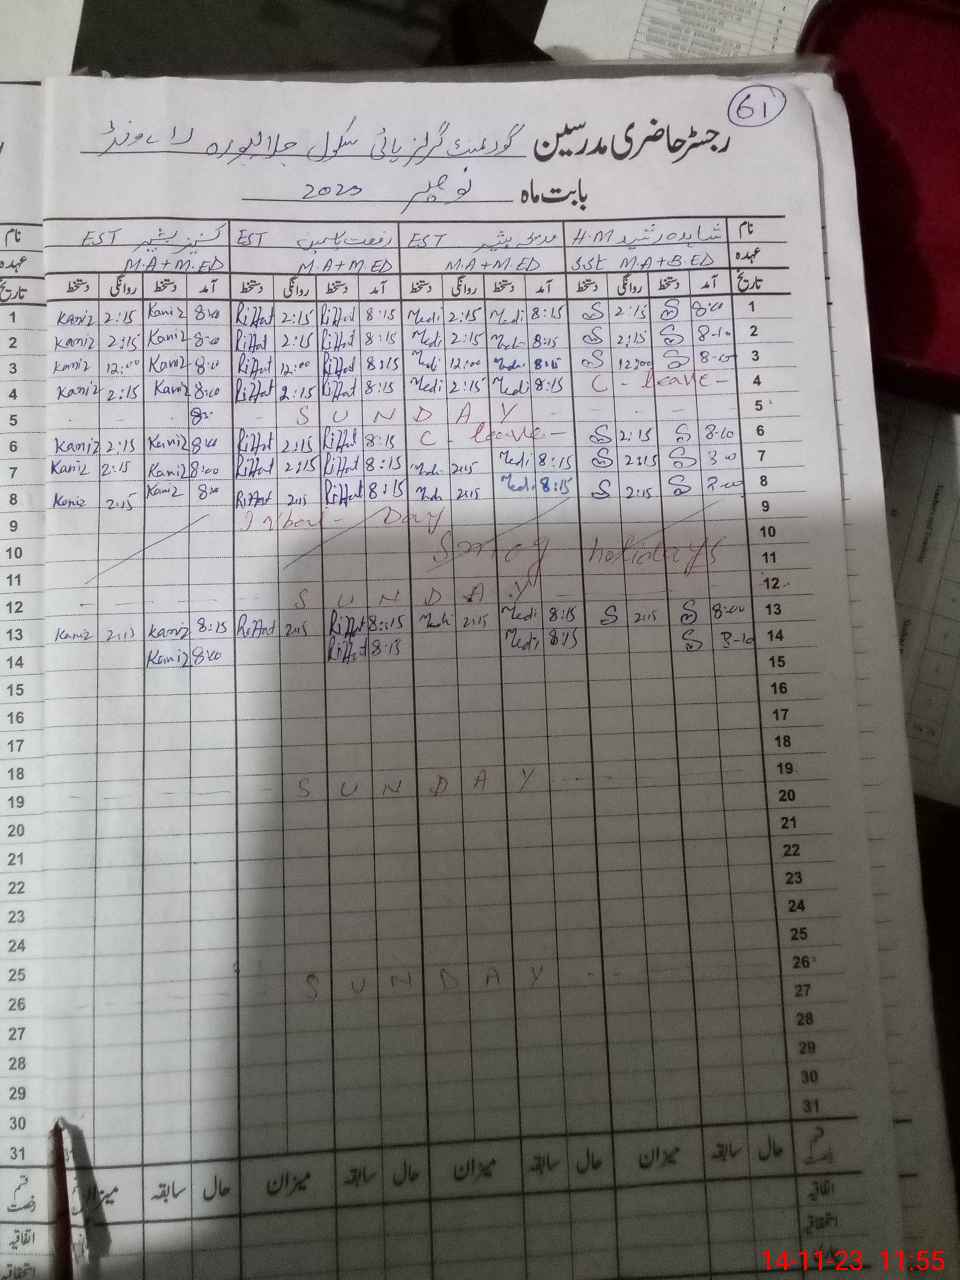 61
رجسٹر حاضری مدرسین گورنمنٹ گرلز ہائی سکول جلالپورہ رائے ونڈ
بابت ماہ نومبر 2023
نام شاہدہ رشید H.M EST رفعت EST کنیز بشیر EST نام
عہدہ S.St M.A+B.ED M.A+M.ED M.A+M.ED M.A+M.ED عہدہ
تاریخ آمد دستخط روانگی دستخط آمد دستخط روانگی دستخط آمد دستخط روانگی دستخط آمد دستخط روانگی دستخط تاریخ
1 Kaniz 2:15 Kaniz 8:00 Riffat 2:15 Riffat 8:15 Medi 2:15 Medi 8:15 S 2:15 S 8:00 1
2 Kaniz 2:15 Kaniz 8:00 Riffat 2:15 Riffat 8:15 Medi 2:15 Medi 8:15 S 2:15 S 8:10 2
3 Kaniz 12:00 Kaniz 8:00 Riffat 12:00 Riffat 8:15 Medi 12:00 Medi 8:15 S 12:00 S 8:00 3
4 Kaniz 2:15 Kaniz 8:00 Riffat 2:15 Riffat 8:15 Medi 2:15 Medi 8:15 C - leave - 4
5 8: S U N D A Y 5
6 Kaniz 2:15 Kaniz 8:00 Riffat 2:15 Riffat 8:15 C - leave - S 2:15 S 8:10 6
7 Kaniz 2:15 Kaniz 8:00 Riffat 2:15 Riffat 8:15 Medi 2:15 Medi 8:15 S 2:15 S 7
8 Kaniz 2:15 Kaniz 8:00 Riffat 2:15 Riffat 8:15 Medi 2:15 Medi 8:15 S 2:15 S 8
9 Iqbal - Day 9
10 Smog holidays 10
11 11
12 S U N D A Y 12
13 Kaniz 2:15 Kaniz 8:15 Riffat 2:15 Riffat 8:15 Medi 2:15 Medi 8:15 S 2:15 S 8:00 13
14 Kaniz 8:00 Riffat 8:15 Medi 8:15 S 8:10 14
15 15
16 16
17 17
18 18
19 S U N D A Y 19
20 20
21 21
22 22
23 23
24 24
25 25
26 S U N D A Y 26
27 27
28 28
29 29
30 30
31 31
قسم رخصت حال سابقہ میزان حال سابقہ میزان حال سابقہ میزان حال سابقہ میزان قسم رخصت
اتفاقیہ اتفاقیہ
استحقاقیہ استحقاقیہ
14-11-23 11:55